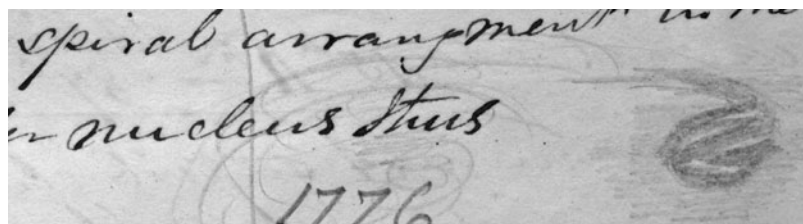 spiral arrangment in the
nucleus thus
1776